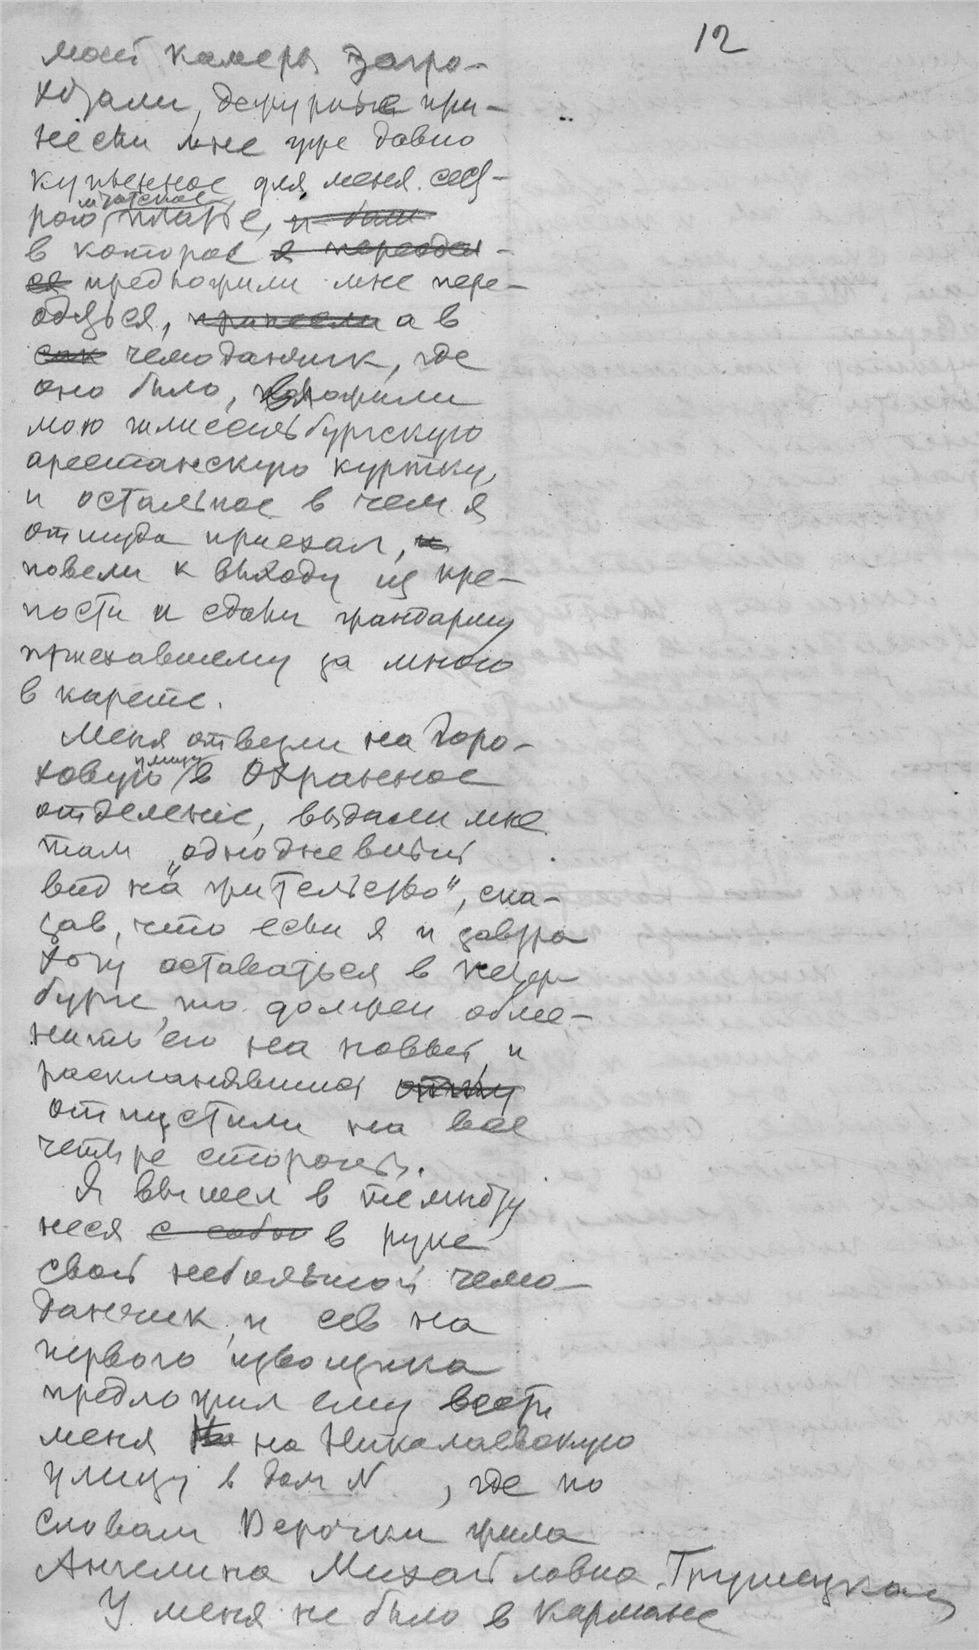 12
моей камеры загро-
хотали, дежурные при-
несли мне уже давно
купленное для меня сест-
рой штатское платье, и были
в которое я переодел-
ся предложили мне пере-
одеться, принесли а в
сак чемоданчик, где
оно было, положили
мою шлиссельбургскую
арестанскую куртку,
и остальное в чем я
оттуда приехал, и
повели к выходу из кре-
пости и сдали жандарму
приехавшему за мною
в карете.
Меня отвезли на Горо-
ховую улицу в Охранное
отделение, выдали мне
там „однодневный
вид на жительство“, ска-
зав, что если я и завтра
хочу оставаться в Петер-
бурге, то должен обме-
нить его на новый, и
раскланявшись отпу
отпустили на все
четыре стороны.
Я вышел в темноту
неся с собой в руке
свой небольшой чемо-
данчик, и сев на
первого извощика
предложил ему везти
меня на на Николаевскую
улицу в дом N , где по
словам Верочки жила
Ангелина Михайловна
У меня не было в кармане